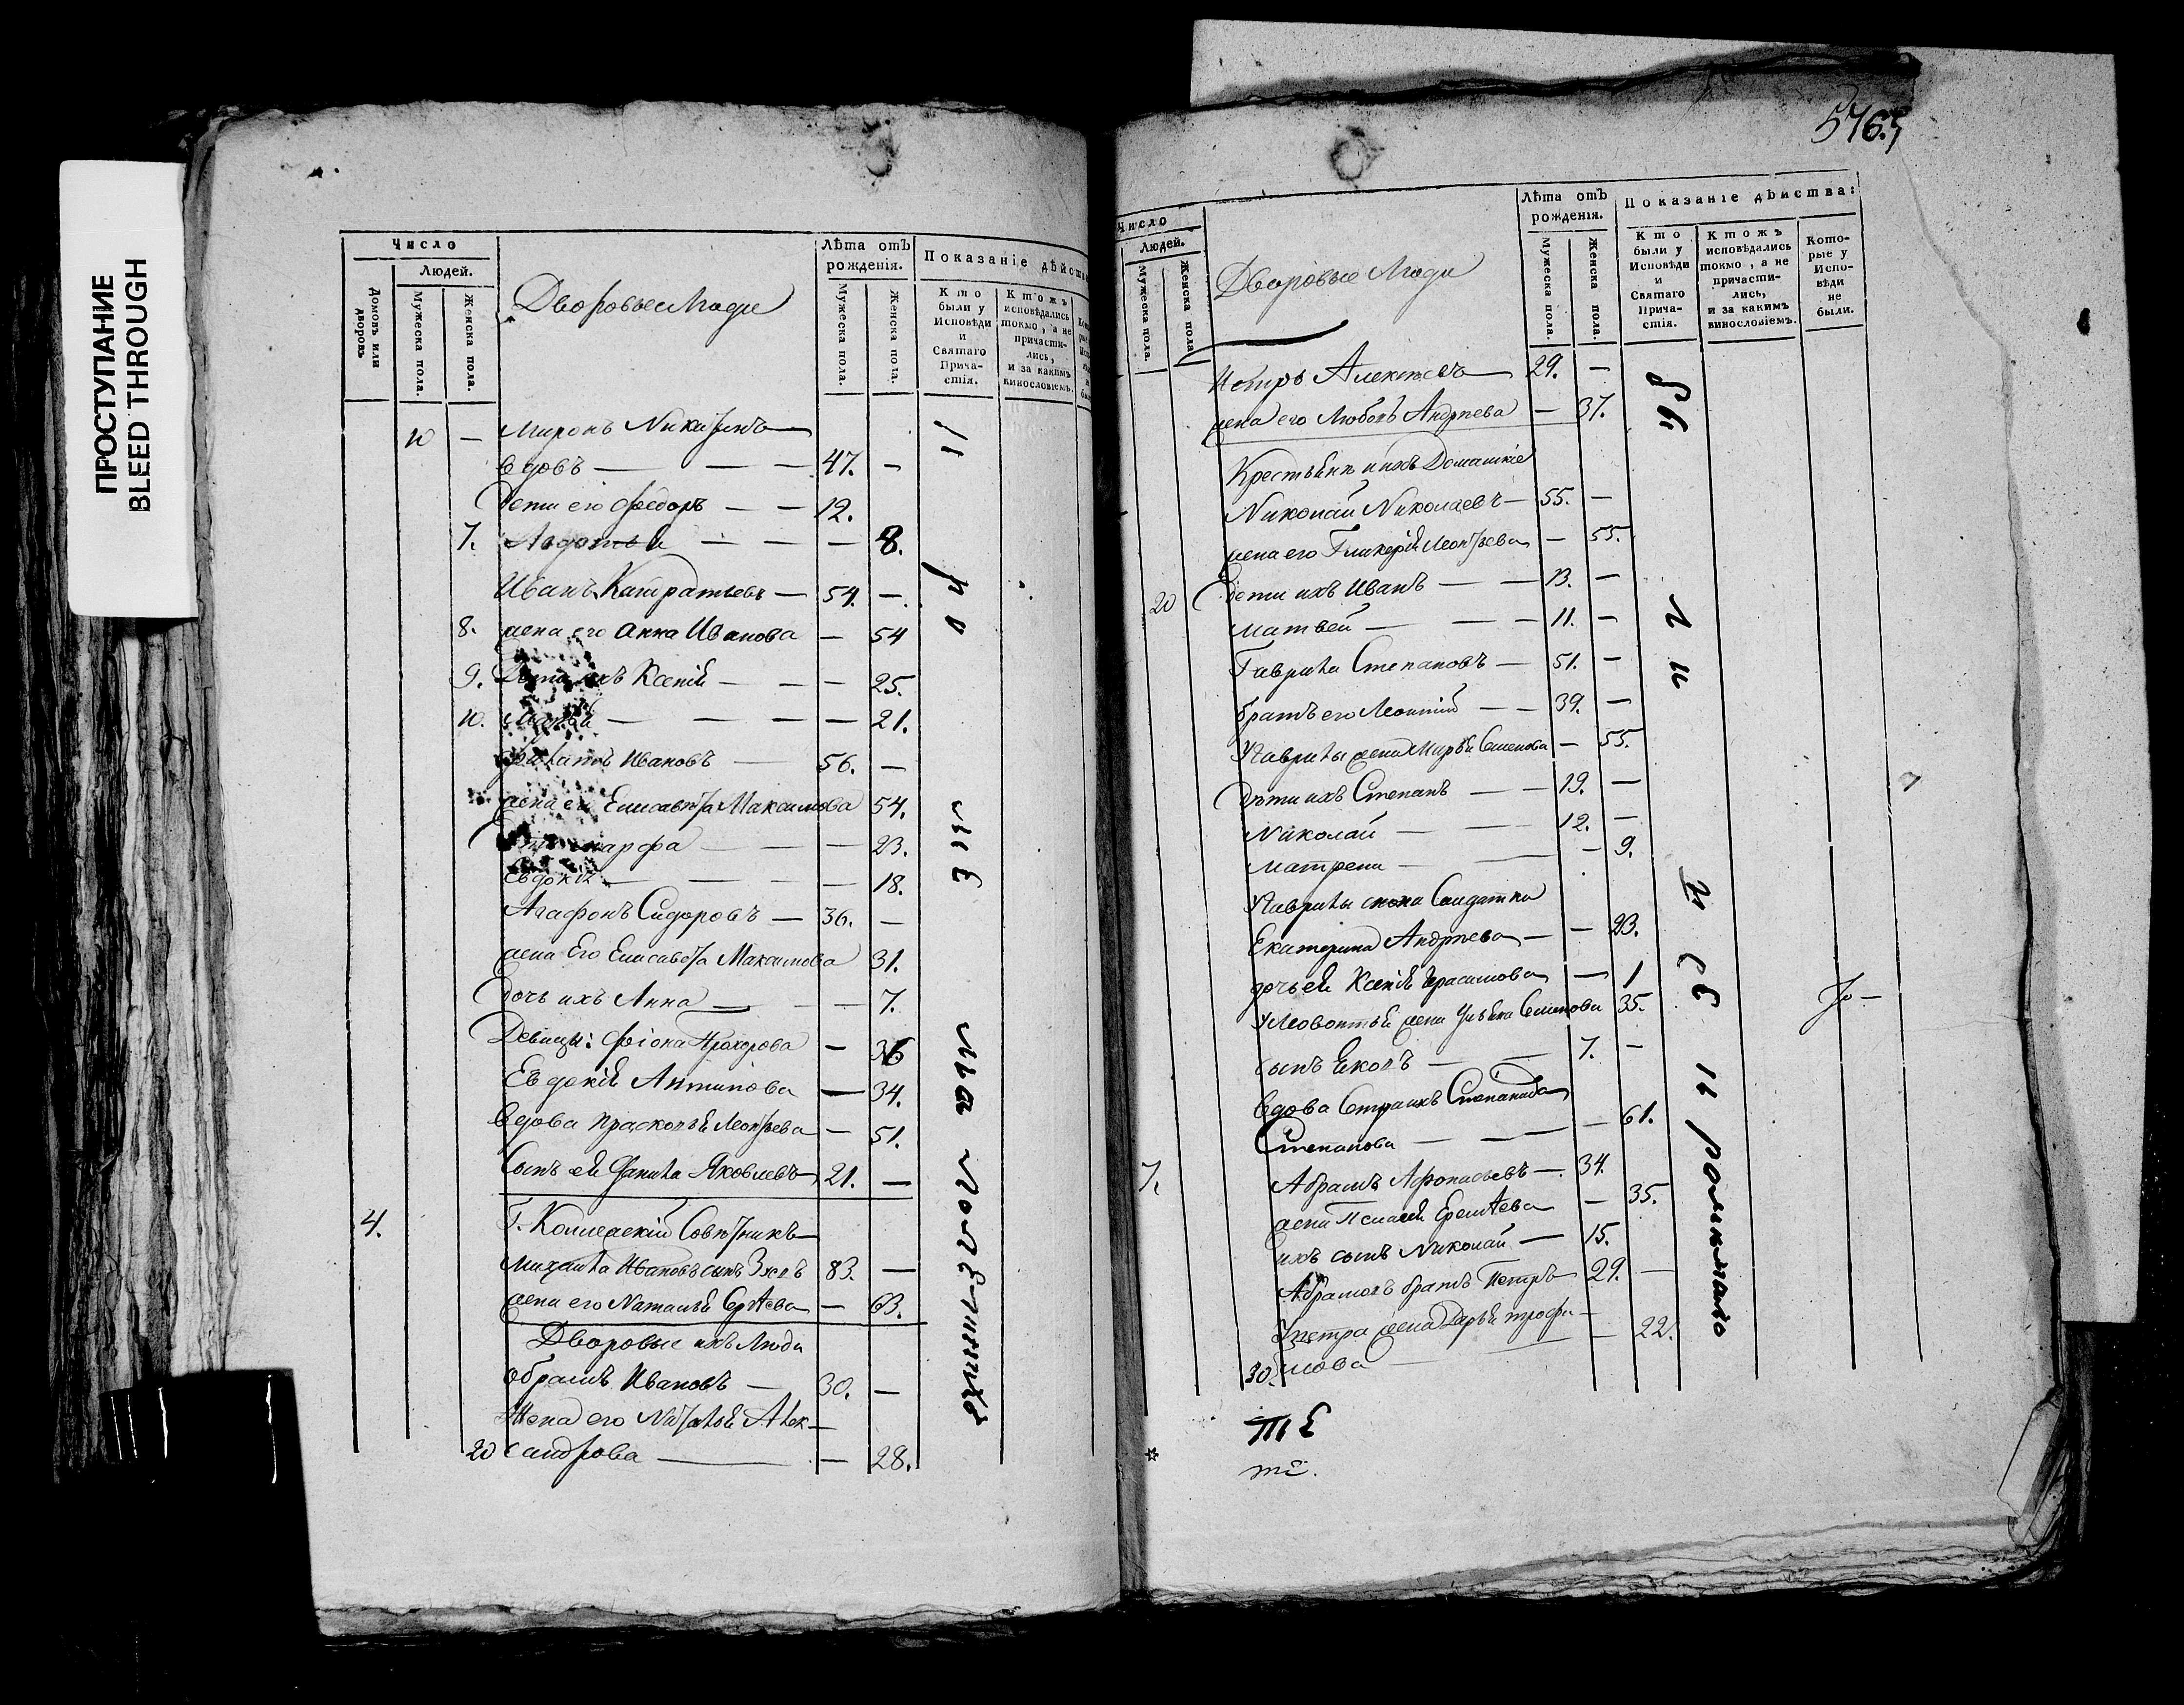 ПРОСТУПАНИЕ
BLEED THROUGH
Число
Людей.
Домовъ или дворовъ
Мужеска пола.
Женска пола.
Дворовые Люди
Лѣта отъ рожденія.
Мужеска пола.
Женска пола.
Показаніе дѣйст
Кто были у Исповѣди и Святаго Причастія.
Ктожъ исповѣдались токмо, а не причастились, и за какимъ винословіемъ.
10 — Миронъ Никитинъ
вдовъ — — — 47. —
Дети его Федоръ — — 12.
7. Авдотья — — — — 8.
Иванъ — 54. —
8. жена его Анна Иванова — 54
9. Дети ихъ Ксенія — — — 25.
10. Марья — — — — 21.
Ивановъ — 56. —
жена ей Елисавета Максимова 54.
Марфа — — — 23.
Евдокія — — — — 18.
Агафонъ Сидоровъ — 36. —
жена Его Елисавета Максимова 31.
Дочь ихъ Анна — — 7.
Девицы: Фіона Прохорова — 36
Евдокія Антипова — 34.
Вдова Прасковья Леонтьева — 51.
Сынъ ей Данила Яковлевъ 21. —
4. Г. Коллежскій Советникъ
Михайла Ивановъ сынъ 83. —
жена его Наталья Сергѣева — 63.
Дворовые ихъ Люди
Абрамъ Ивановъ — 30. —
Жена его Наталья Алек—
20 сандрова — — 28.
5765
Число
Людей.
Мужеска пола.
Женска пола.
Дворовые Люди
Лѣта отъ рожденія.
Мужеска пола.
Женска пола.
Показаніе дѣйства:
Кто были у Исповѣди и Святаго Причастія.
Ктожъ исповѣдались токмо, а не причастились, и за какимъ винословіемъ.
Которые у Исповѣди не были.
Петръ Алексѣевъ 29. —
жена его Любовь Андреева — 37.
Крестьяне ихъ Домашніе
Николай Николаевъ — 55. —
жена его Гликерія Леонтьева — 55.
20 Дети ихъ Иванъ — — 13. —
Матвей — — 11. —
Гаврила Степановъ — 51. —
братъ его Леонтій — — 39. —
У Гаврилы жена Марья Семенова — 55.
Дети ихъ Степанъ — — 19. —
Николай — — 12. —
Матрена — — — 9.
У Гаврилы сноха Солдатка
Екатерина Андреева — — 23.
дочь ей Ксенія Герасимова — 1
У Леонтья жена Ульяна Семенова 35.
сынъ Яковъ — — 7. —
Вдова Степанида
Степанова — — — 61.
7. Абрамъ Афонасьевъ — 34.
жена Еремѣева — 35.
ихъ сынъ Николай — 15.
Абрамовъ братъ Петръ 29. —
У Петра жена Дарья Трофи—
30. мова — — 22.